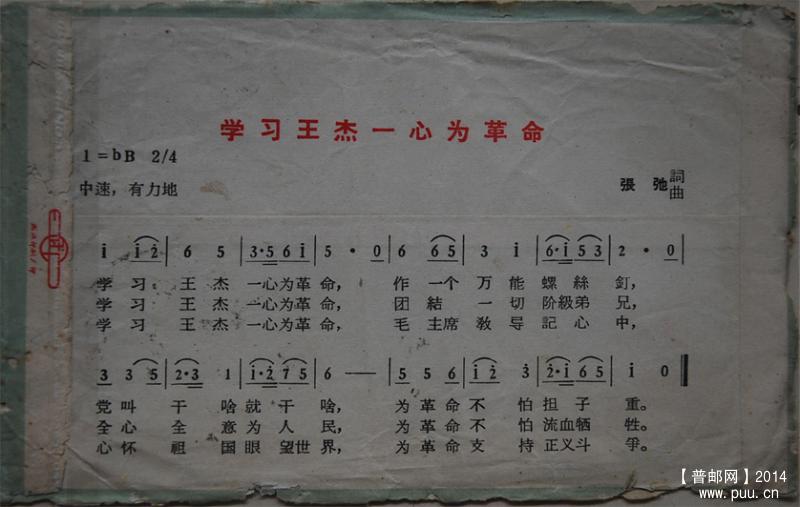 学习王杰一心为革命
1=bB 2/4
中速，有力地
張弛詞曲
i i2 | 6 5 | 3·5 6i | 5· 0 | 6 65 | 3 i | 6·i 53 | 2· 0 |
学习王杰一心为革命，作一个万能螺絲釘，
学习王杰一心为革命，团結一切阶級弟兄，
学习王杰一心为革命，毛主席教导記心中，
3 3 5 | 2·3 1 | i·2 75 | 6 — | 5 5 6 | i2 3 | 2·i 65 | i 0 ‖
党叫干啥就干啥，为革命不怕担子重。
全心全意为人民，为革命不怕流血牺牲。
心怀祖国眼望世界，为革命支持正义斗爭。
【普邮网】2014
www.puu.cn